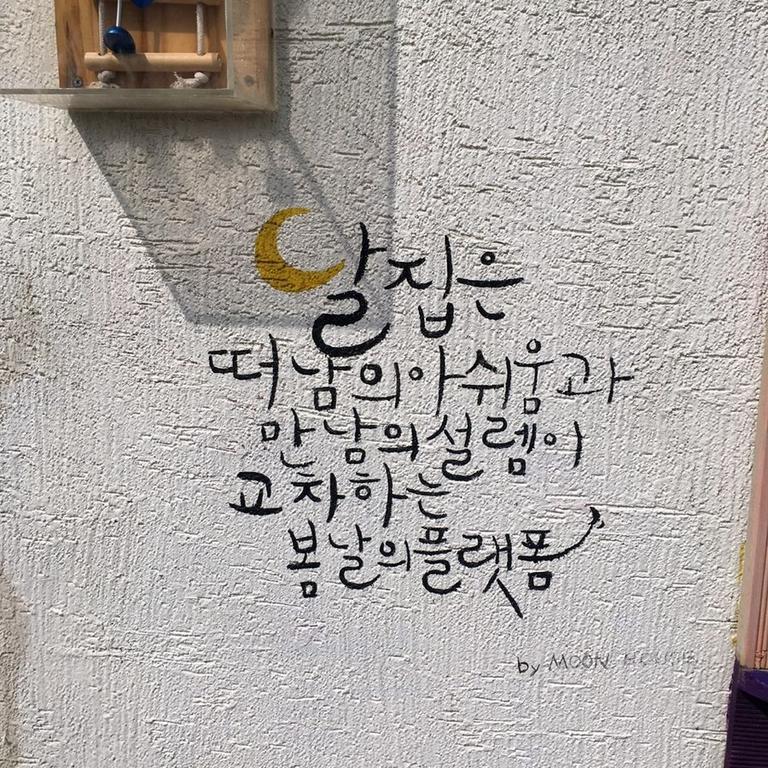 달집은
떠남의아쉬움과
만남의설렘이
교차하는
봄날의플랫폼
by MOON HOUSE